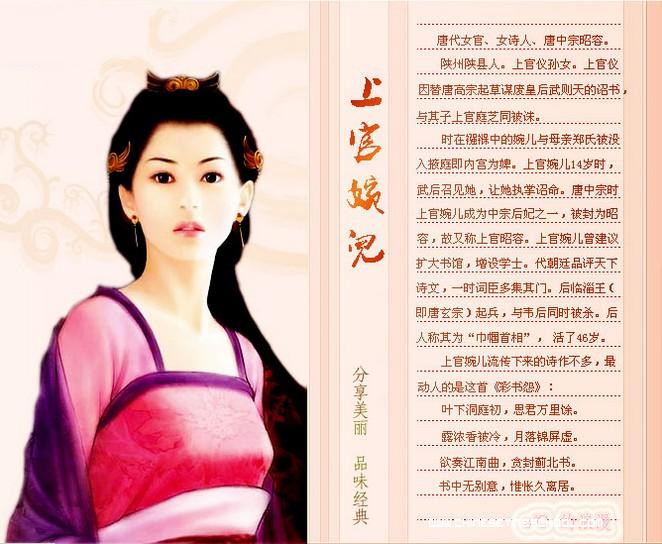 上官婉兒
分享美丽 品味经典
唐代女官、女诗人、唐中宗昭容。
陕州陕县人。上官仪孙女。上官仪
因替唐高宗起草谋废皇后武则天的诏书，
与其子上官庭芝同被诛。
时在襁褓中的婉儿与母亲郑氏被没
入掖庭即内宫为婢。上官婉儿14岁时，
武后召见她，让她执掌诏命。唐中宗时
上官婉儿成为中宗后妃之一，被封为昭
容，故又称上官昭容。上官婉儿曾建议
扩大书馆，增设学士。代朝廷品评天下
诗文，一时词臣多集其门。后临淄王（
即唐玄宗）起兵，与韦后同时被杀。后
人称其为“巾帼首相”，活了46岁。
上官婉儿流传下来的诗作不多，最
动人的是这首《彩书怨》：
叶下洞庭初，思君万里馀。
露浓香被冷，月落锦屏虚。
欲奏江南曲，贪封蓟北书。
书中无别意，惟怅久离居。